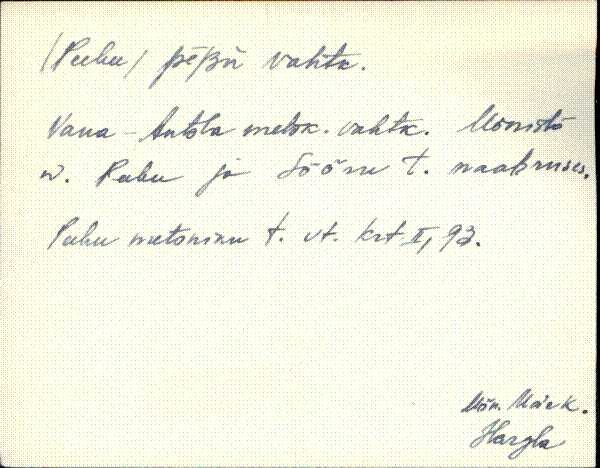 (Peebu) pēβu vahtk.
Vana-Antsla metsk. vahtk. Mõnistõ
w. Peebu ja Sõõru t. naabruses.
Peebu metsniku t. vt. krt II, 93.
Mõn. Mäek.
Hargla